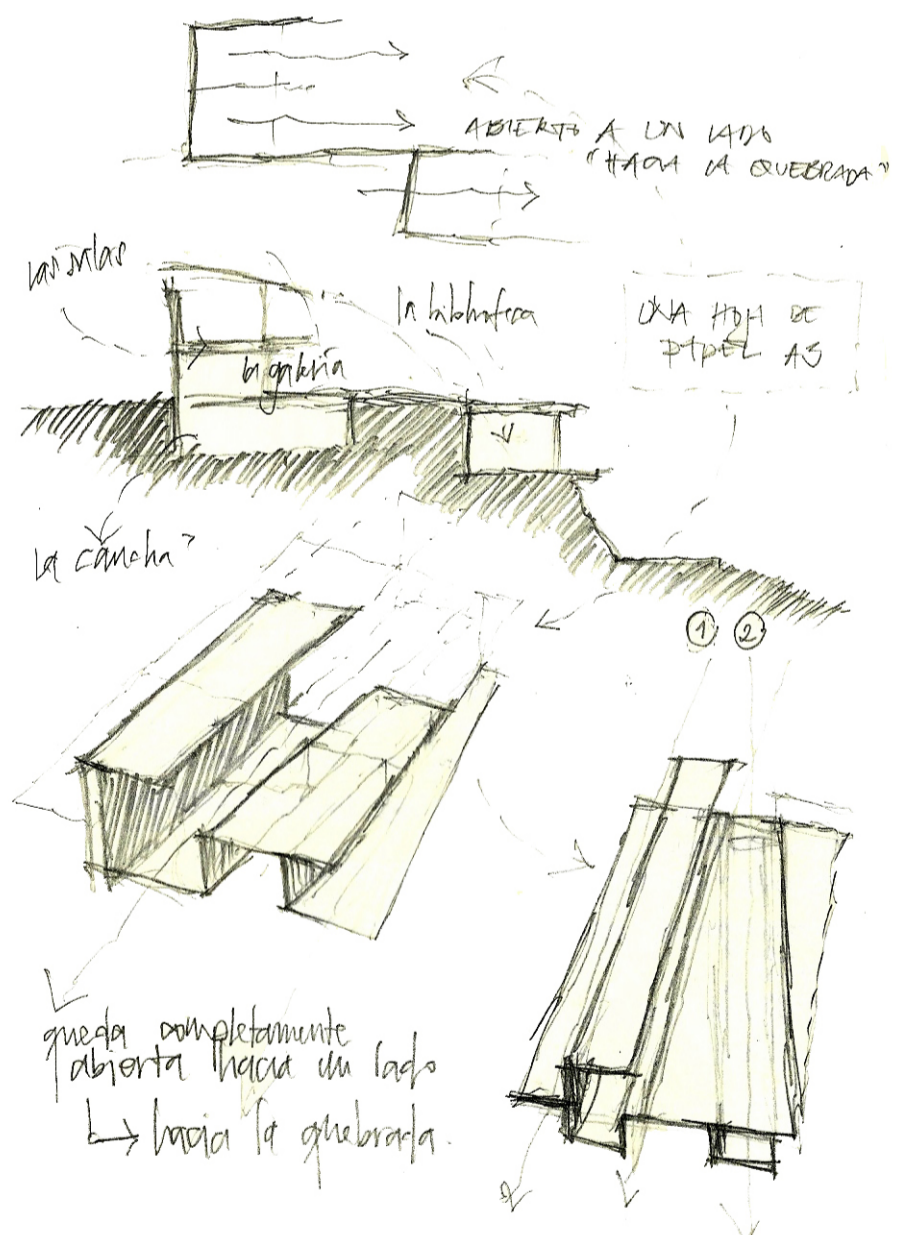 ABIERTO A UN LADO
"HACIA LA QUEBRADA"
las salas
la biblioteca
UNA HOJA DE
PAPEL A3
la galería
la cancha?
1 2
queda completamente
abierta hacia un lado
↳ hacia la quebrada.